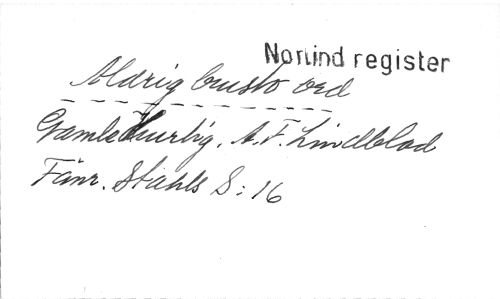 Norlind register
Aldrig brusto ord
Gamle Hurtig, A. F. Lindblad
Fänr. Ståhls S: 16